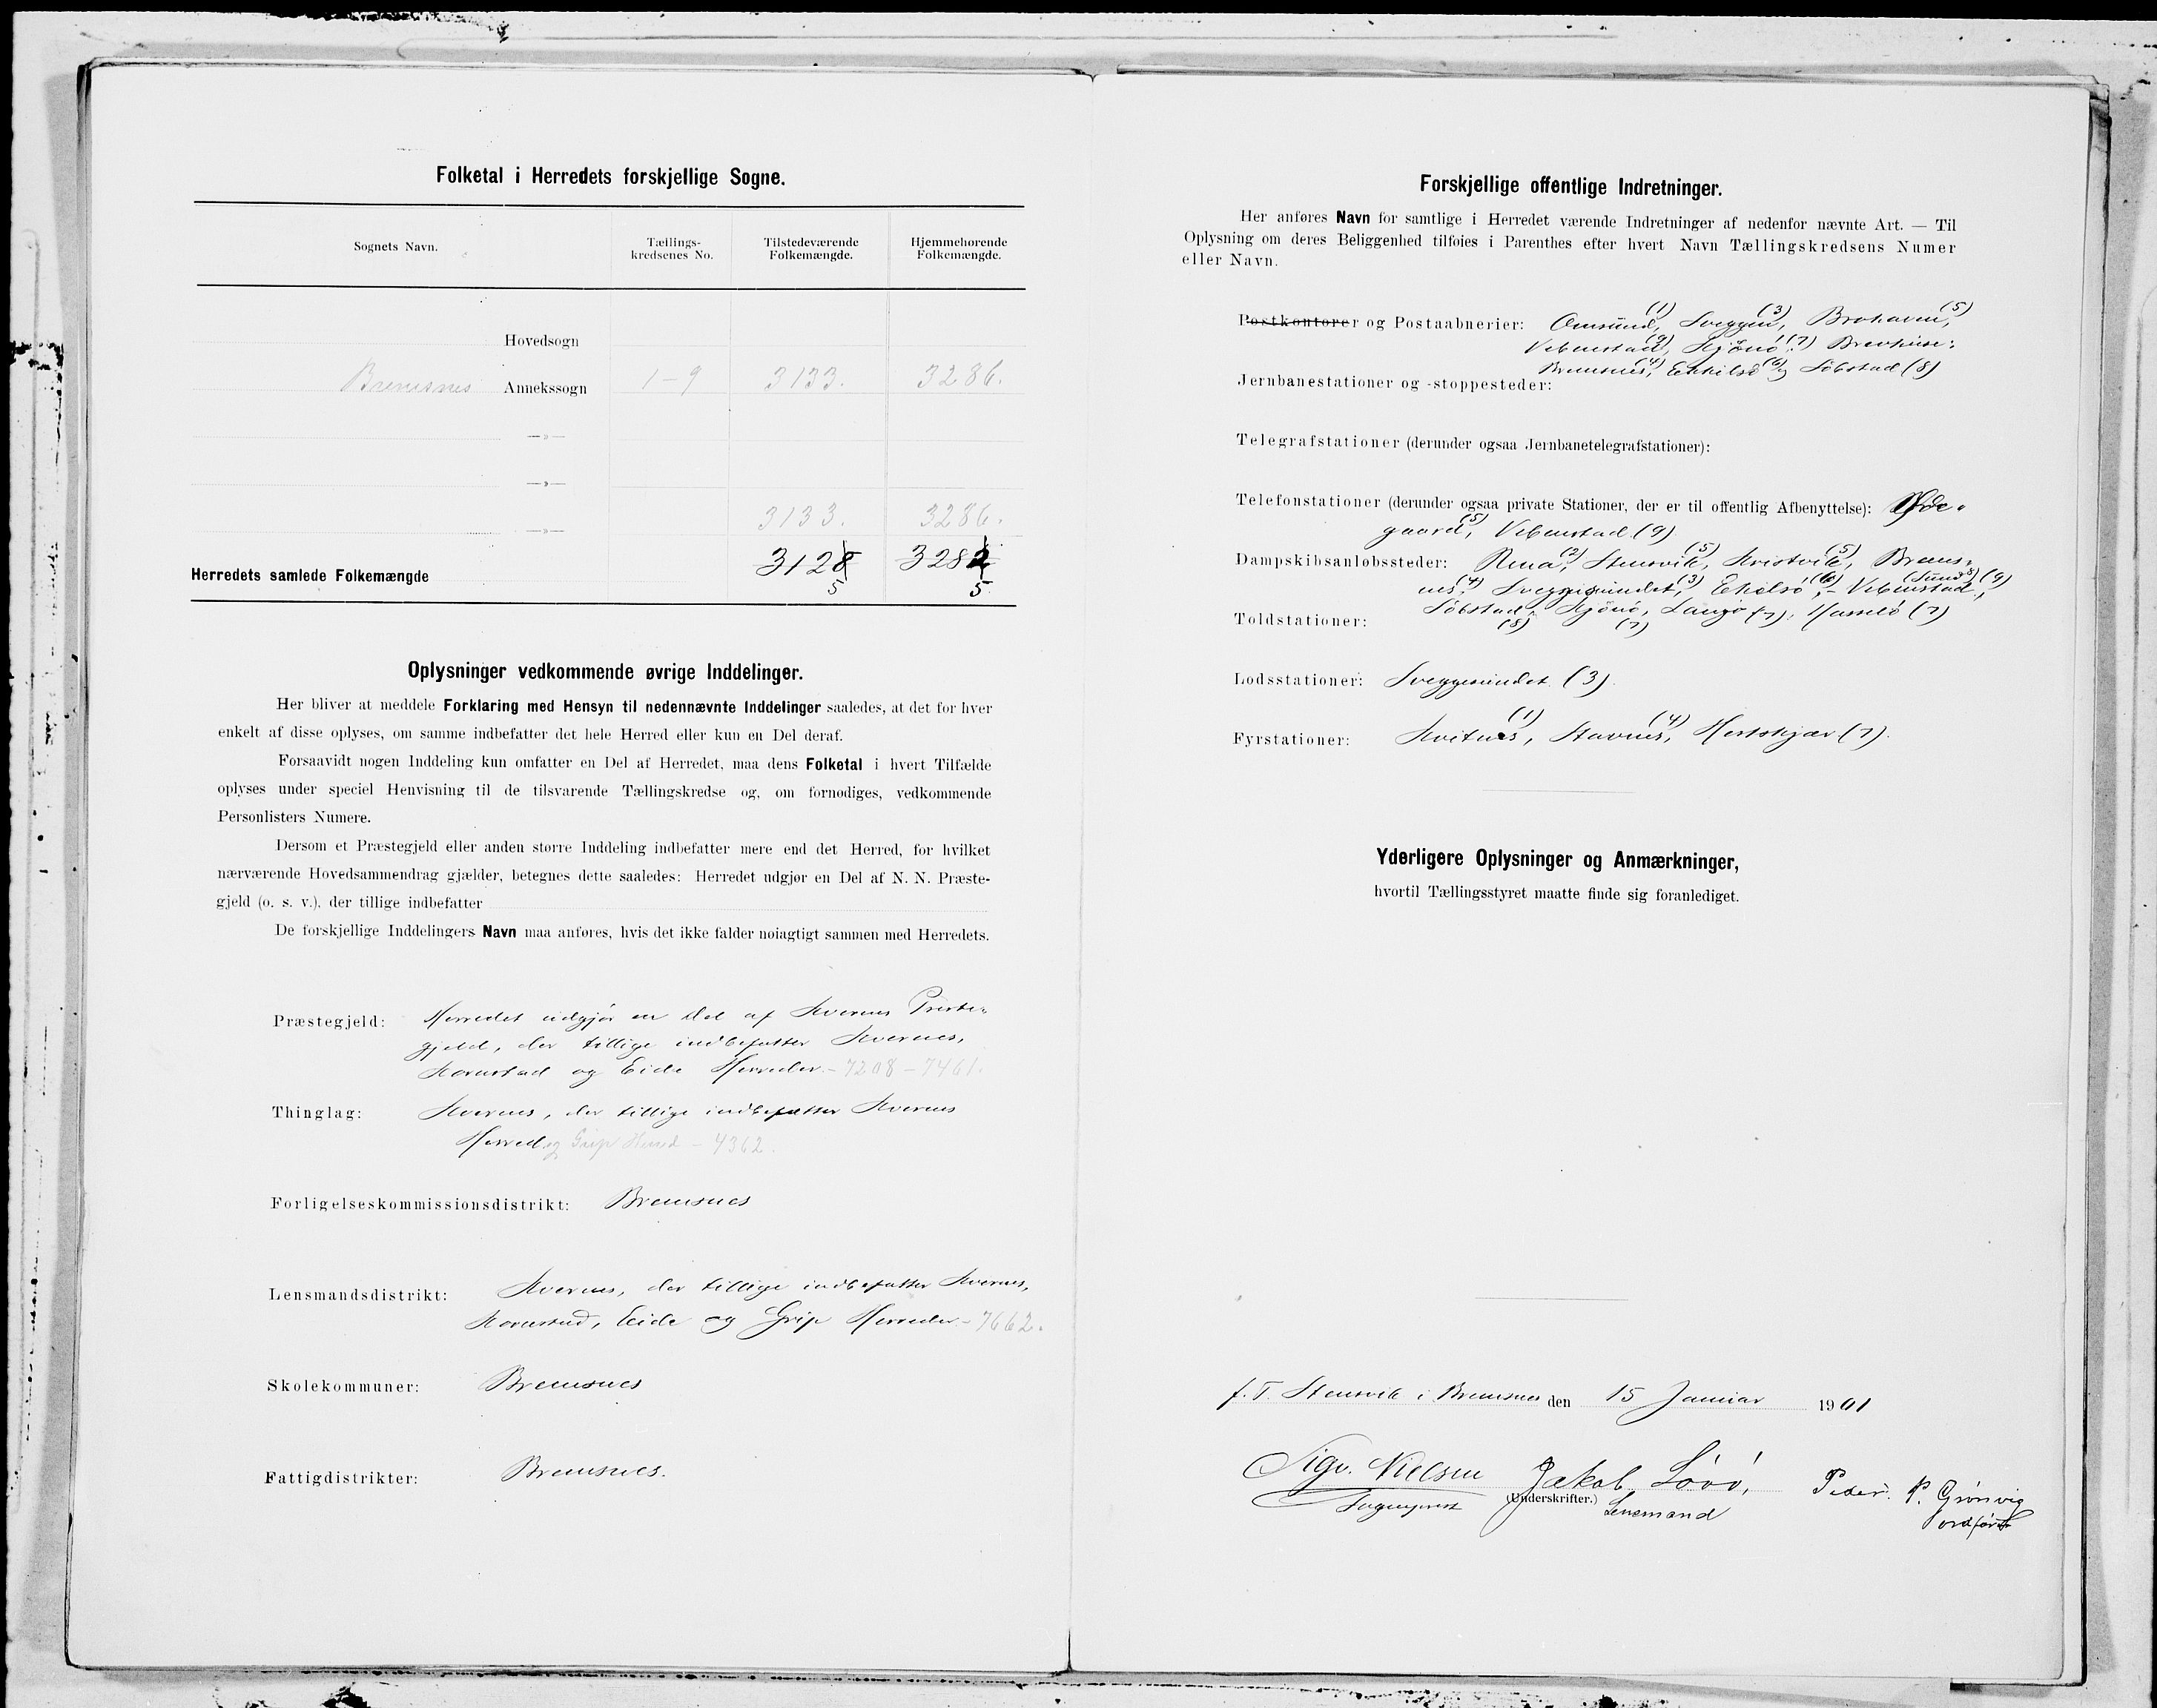 Folketal i Herredets forskjellige Sogne.
Sognets Navn. Tællings-kredsenes No. Tilstedeværende Folkemængde. Hjemmehørende Folkemængde.
Hovedsogn
Bremsnes Annekssogn 1-9 3133. 3286.
—»—
—»—
—»— 3133. 3286.
Herredets samlede Folkemængde 3128 3282
5 5
Oplysninger vedkommende øvrige Inddelinger.
Her bliver at meddele Forklaring med Hensyn til nedennævnte Inddelinger saaledes, at det for hver
enkelt af disse oplyses, om samme indbefatter det hele Herred eller kun en Del deraf.
Forsaavidt nogen Inddeling kun omfatter en Del af Herredet, maa dens Folketal i hvert Tilfælde
oplyses under speciel Henvisning til de tilsvarende Tællingskredse og, om fornødiges, vedkommende
Personlisters Numere.
Dersom et Præstegjeld eller anden større Inddeling indbefatter mere end det Herred, for hvilket
nærværende Hovedsammendrag gjælder, betegnes dette saaledes: Herredet udgjør en Del af N. N. Præste-
gjeld (o. s. v.), der tillige indbefatter
De forskjellige Inddelingers Navn maa anføres, hvis det ikke falder nøiagtigt sammen med Herredets.
Præstegjeld: Herredet udgjør en Del af Kvernes Præste-
gjeld, der tillige indbefatter Kvernes,
Kornstad og Eide Herreder. - 7208 - 7461.
Thinglag: Kvernes, der tillige indbefatter Kvernes
Herred og Grip Herred - 4362.
Forligelseskommissionsdistrikt: Bremsnes
Lensmandsdistrikt: Kvernes, der tillige indbefatter Kvernes,
Kornstad, Eide og Grip Herreder. - 7662.
Skolekommuner: Bremsnes
Fattigdistrikter: Bremsnes.
Forskjellige offentlige Indretninger.
Her anføres Navn for samtlige i Herredet værende Indretninger af nedenfor nævnte Art. — Til
Oplysning om deres Beliggenhed tilføies i Parenthes efter hvert Navn Tællingskredsens Numer
eller Navn.
Postkontorer og Postaabnerier: Omsund, (1) Sveggen, (3) Brohavn, (5)
Vebenstad, (9) Kjønø, (7)
Bremsnes, (4) Ekkilsø (6) og Søbstad (8)
Jernbanestationer og -stoppesteder:
Telegrafstationer (derunder ogsaa Jernbanetelegrafstationer):
Telefonstationer (derunder ogsaa private Stationer, der er til offentlig Afbenyttelse): Øde-
gaard, (5) Vebenstad (9)
Dampskibsanløbssteder: Rena, (2) Stensvik, (5) Kristvik, (5) Brems-
nes, (4) Sveggesundet, (3) Ekilsø, (6) Vebenstad, (9)
Søbstad, (8) Kjønø, (7) Langø (7), Hamelö (7)
Toldstationer:
Lodsstationer: Sveggesundet (3).
Fyrstationer: Kvitnes, (1) Stavnes, (4) Hestskjær (7).
Yderligere Oplysninger og Anmærkninger,
hvortil Tællingsstyret maatte finde sig foranlediget.
f. T. Stensvik i Bremsnes den 15 Januar 1901
Sigv. Nielsen Jakob Løvø, Peder P. Grønvig
Sogneprest (Underskrifter.) Lensmand Ordfører